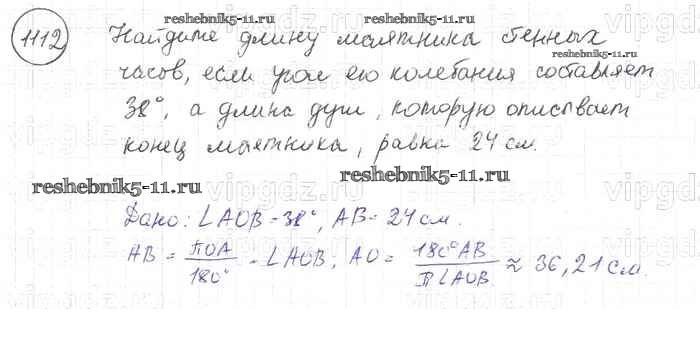 1112 Найдите длину маятника стенных
часов, если угол его колебания составляет
38°, а длина дуги, которую описывает
конец маятника, равна 24 см.
reshebnik5-11.ru reshebnik5-11.ru
reshebnik5-11.ru
reshebnik5-11.ru reshebnik5-11.ru
Дано: ∠AOB = 38°, AB = 24 см.
AB = πOA/180° · ∠AOB; AO = 180°AB/π∠AOB ≈ 36,21 см.